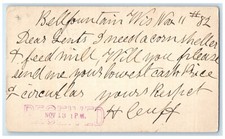 Bellfountain Wis Nov 11 # 82
Dear Gents I need a corn sheller
& feed mill, Will you please
send me your lowest cash Price
& circular yours Respct
H